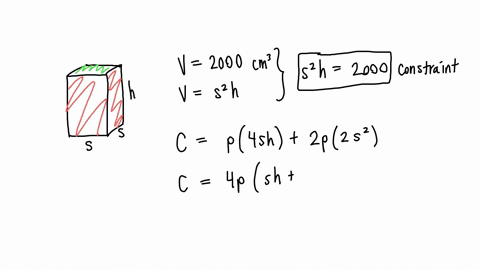 V = 2000 cm³
V = s²h
s²h = 2000 constraint
h
s
s
C = p(4sh) + 2p(2s²)
C = 4p(sh +